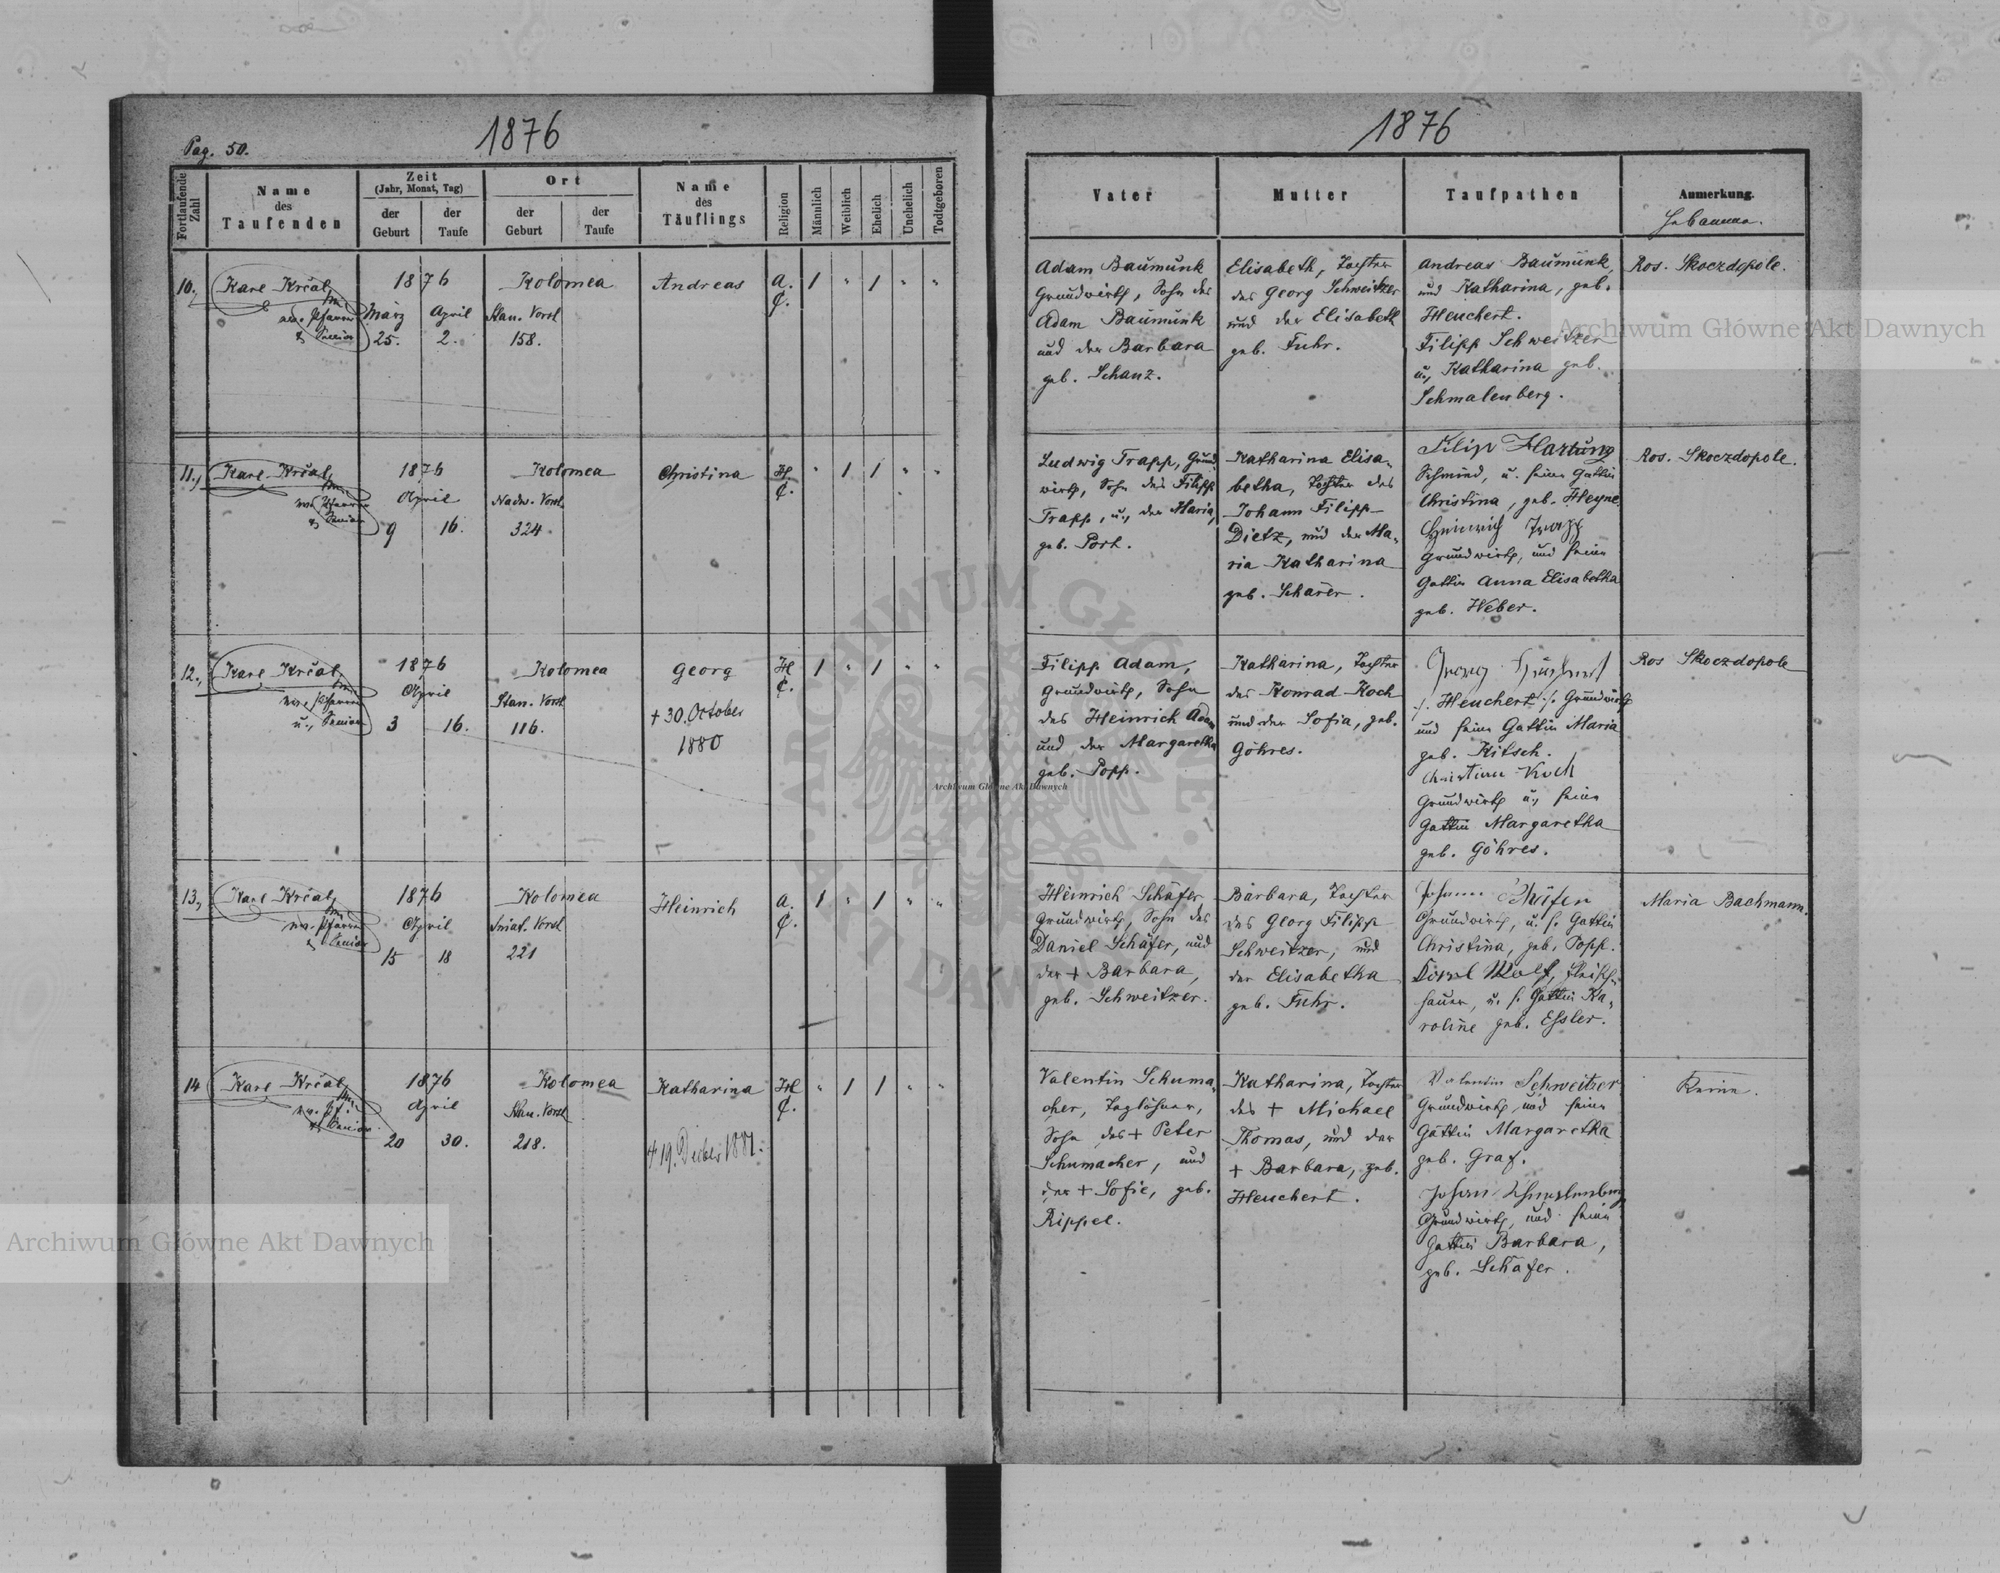 Pag. 50.
1876
1876
Fortlaufende Zahl
Name
des
Taufenden
Zeit
(Jahr, Monat, Tag)
der
Geburt
der
Taufe
Ort
der
Geburt
der
Taufe
Name
des
Täuflings
Religion
Männlich
Weiblich
Ehelich
Unehelich
Todtgeboren
Vater
Mutter
Taufpathen
Anmerkung.
Hebamme.
10.
Karl Krčal
ev. Pfarrer
& Senior
1876
März
April
25.
2.
Kolomea
Stan. Vorst
158.
Andreas
A.
C.
1
"
1
"
"
Adam Baumunk
Grundwirth, Sohn des
Adam Baumunk
und der Barbara
geb. Schanz.
Elisabeth, Tochter
des Georg Schweitzer
und der Elisabeth
geb. Fuhr.
Andreas Baumunk
und Katharina, geb.
Heuchert.
Filipp Schweitzer
u. Katharina geb.
Schmalenberg.
Ros. Skoczdopole.
11.
Karl Krčal
ev. Pfarrer
& Senior
1876
April
9
16.
Kolomea
Nadw. Vorst
324
Christina
H.
C.
"
1
1
"
"
Ludwig Trapp, Grund
wirth, Sohn des Filipp
Trapp, u. der Maria,
geb. Port.
Katharina Elisa-
betha, Tochter des
Johann Filipp
Dietz, und der Ma-
ria Katharina
geb. Schärer.
Filip Hartung
Schmied, u. seine Gattin
Christina, geb. Heyne
Heinrich Trapp
Grundwirth, und seine
Gattin Anna Elisabetha
geb. Weber.
Ros. Skoczdopole.
12.
Karl Krčal
ev. Pfarrer
u. Senior
1876
April
3
16.
Kolomea
Stan. Vorst
116.
Georg
+ 30. October
1880
H
C.
1
"
1
"
"
Filipp Adam,
Grundwirth, Sohn
des Heinrich Adam
und der Margaretha
geb. Popp.
Katharina, Tochter
des Konrad Koch
und der Sofia, geb.
Göhres.
Georg Heuchert
/: Heuchert :/ Grundwirth
und seine Gattin Maria
geb. Kitsch.
Christian Koch
Grundwirth u. seine
Gattin Margaretha
geb. Göhres.
Ros Skoczdopole
13.
Karl Krčal
ev. Pfarrer
& Senior
1876
April
15
18
Kolomea
Sniat. Vorst
221
Heinrich
A.
C.
1
"
1
"
"
Heinrich Schäfer
Grundwirth, Sohn des
Daniel Schäfer, und
der + Barbara,
geb. Schweitzer.
Barbara, Tochter
des Georg Filipp
Schweitzer, und
der Elisabetha
geb. Fuhr.
Johann Schäfer
Grundwirth, u. s. Gattin
Christina, geb. Popp.
Wolf, Fleisch-
hauer, u. s. Gattin Ka-
roline geb. Essler.
Maria Bachmann.
14
Karl Krčal
ev. Pf.
& Senior
1876
April
20
30.
Kolomea
Stan. Vorst
218.
Katharina
+ 19. Decber 1881.
H
C.
"
1
1
"
"
Valentin Schuma-
cher, Taglöhner,
Sohn des + Peter
Schumacher, und
der + Sofie, geb.
Rippel.
Katharina, Tochter
des + Michael
Thomas, und der
+ Barbara, geb.
Heuchert.
Valentin Schweitzer
Grundwirth und seine
Gattin Margaretha
geb. Graf.
Johann Schmalenberg
Grundwirth, und seine
Gattin Barbara,
geb. Schäfer.
Keine.
Archiwum Główne Akt Dawnych
Archiwum Główne Akt Dawnych
Archiwum Główne Akt Dawnych
ARCHIWUM GŁÓWNE AKT DAWNYCH